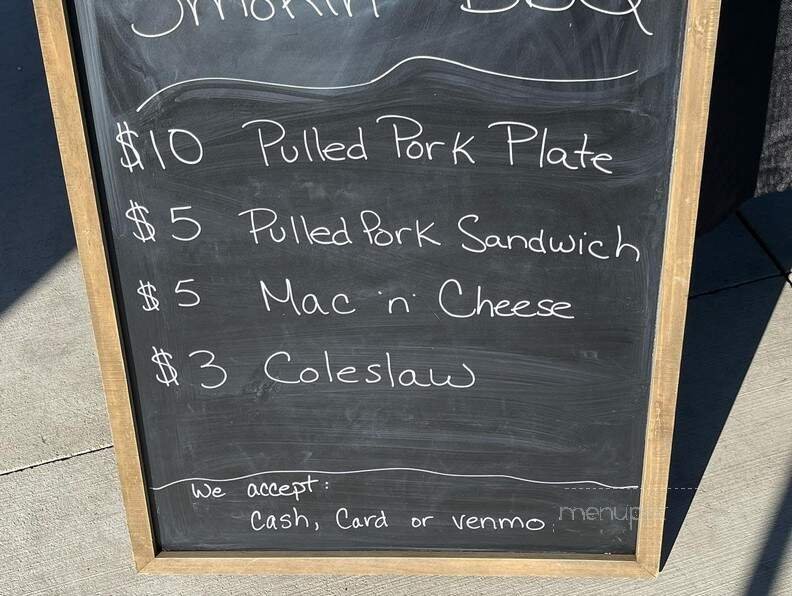 Smokin BBQ
$10 Pulled Pork Plate
$5 Pulled Pork Sandwich
$5 Mac 'n' Cheese
$3 Coleslaw
We accept:
Cash, Card or venmo